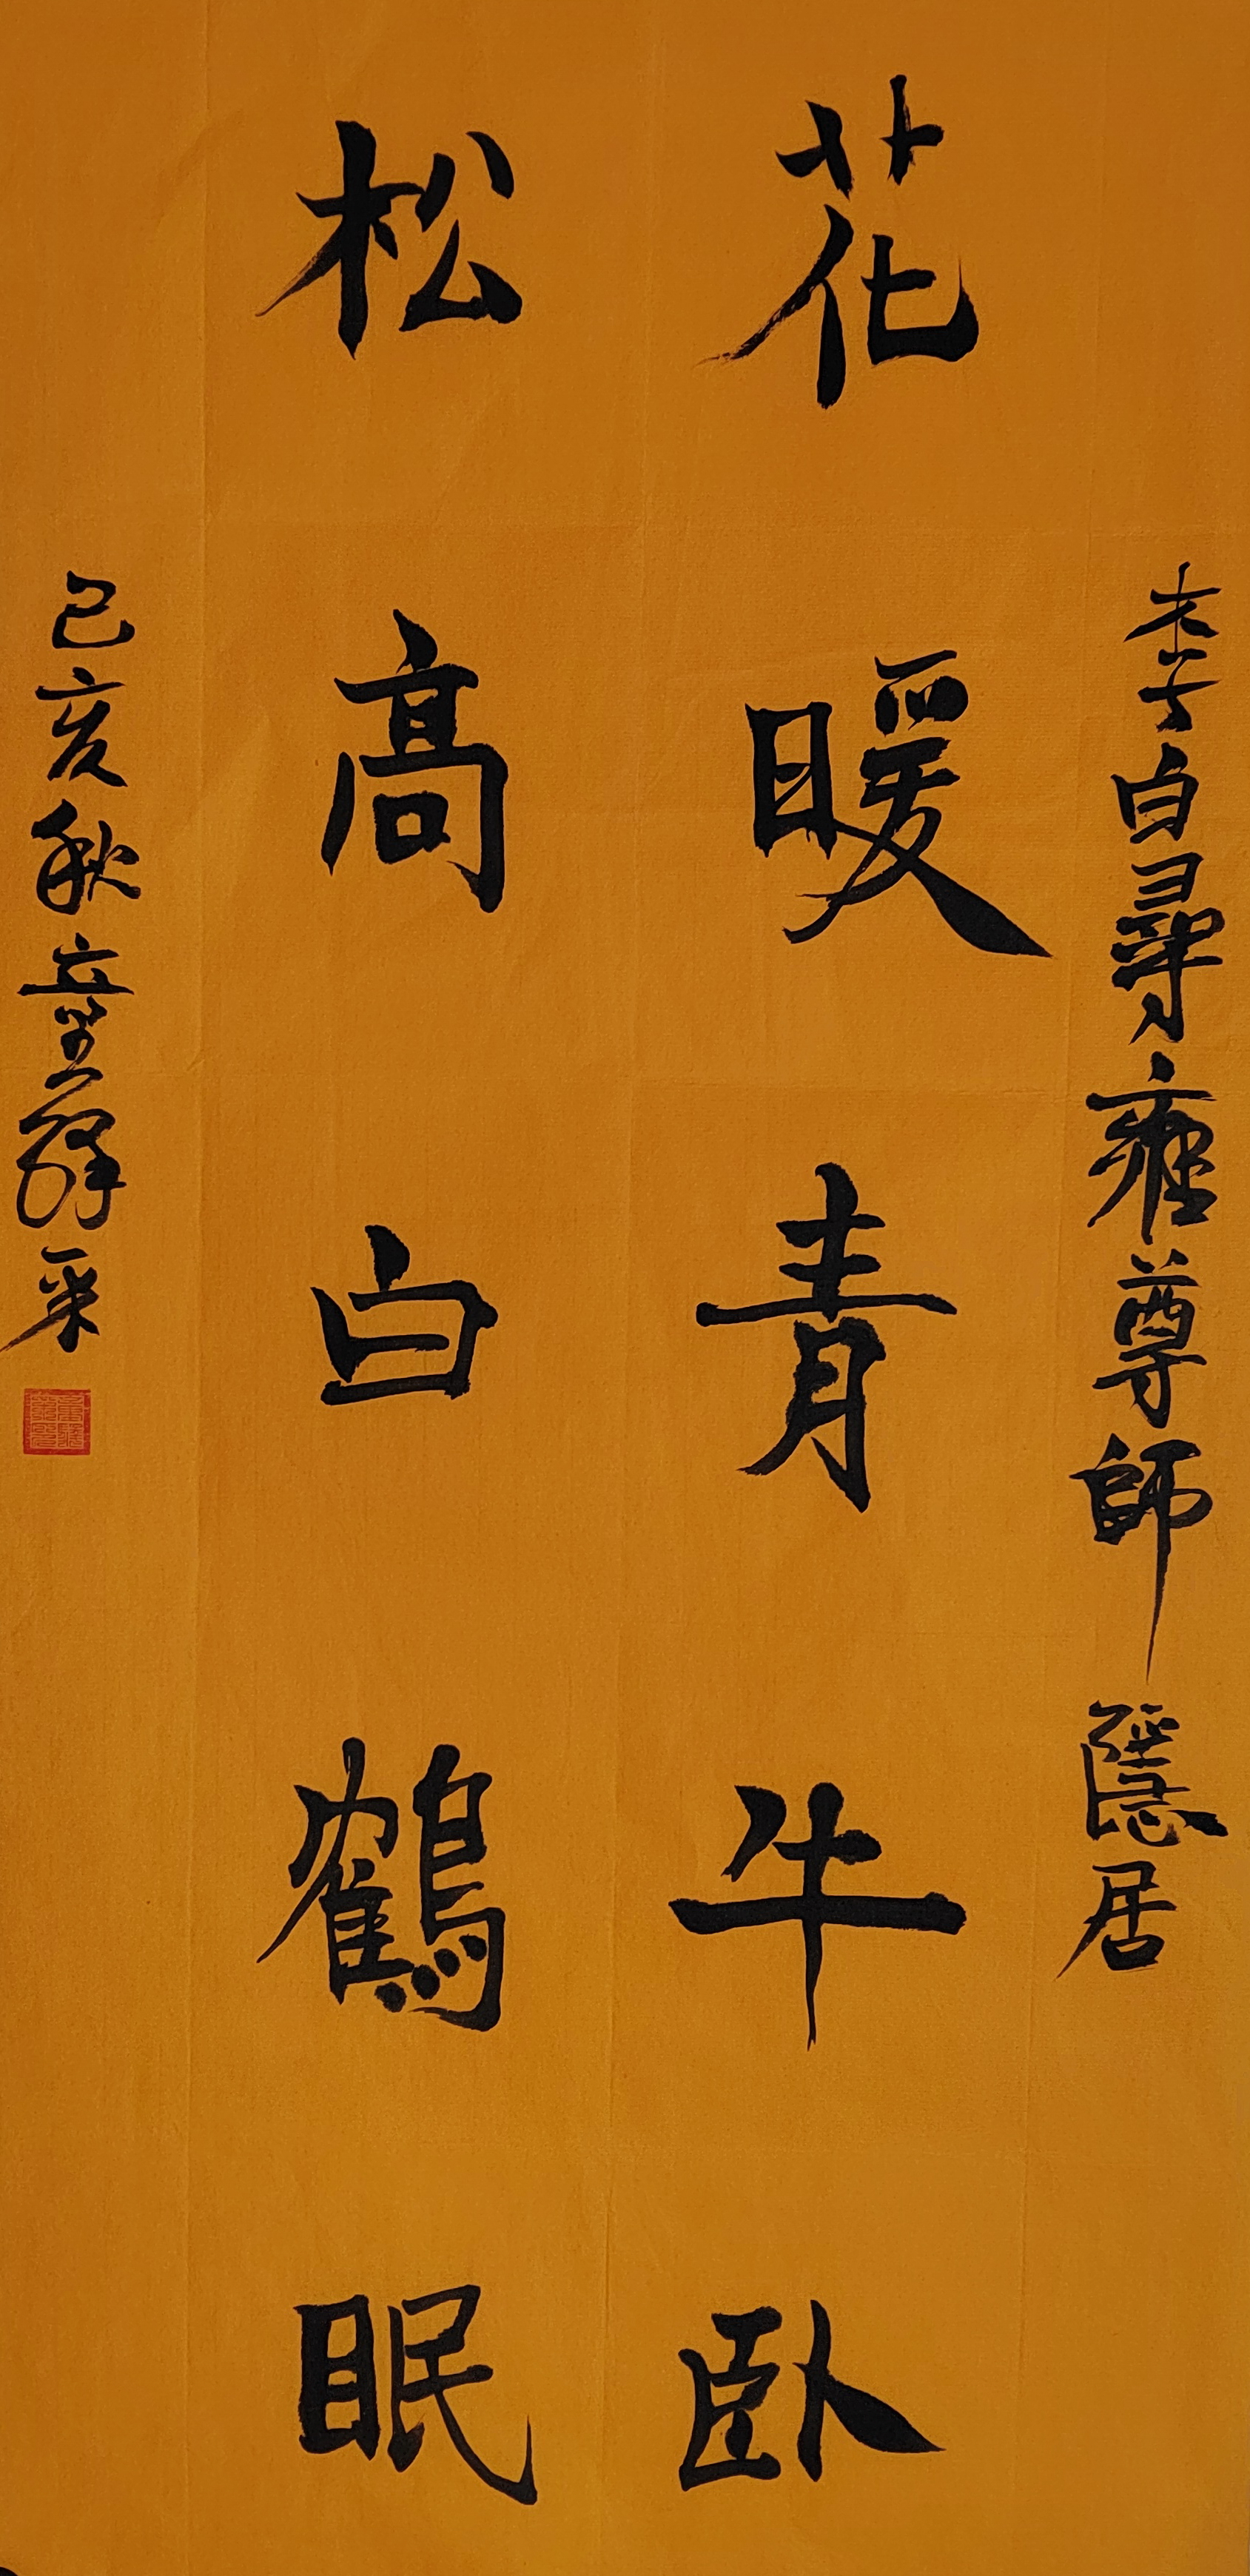 李白尋雍尊師隱居
花暖青牛卧
松高白鶴眠
己亥秋